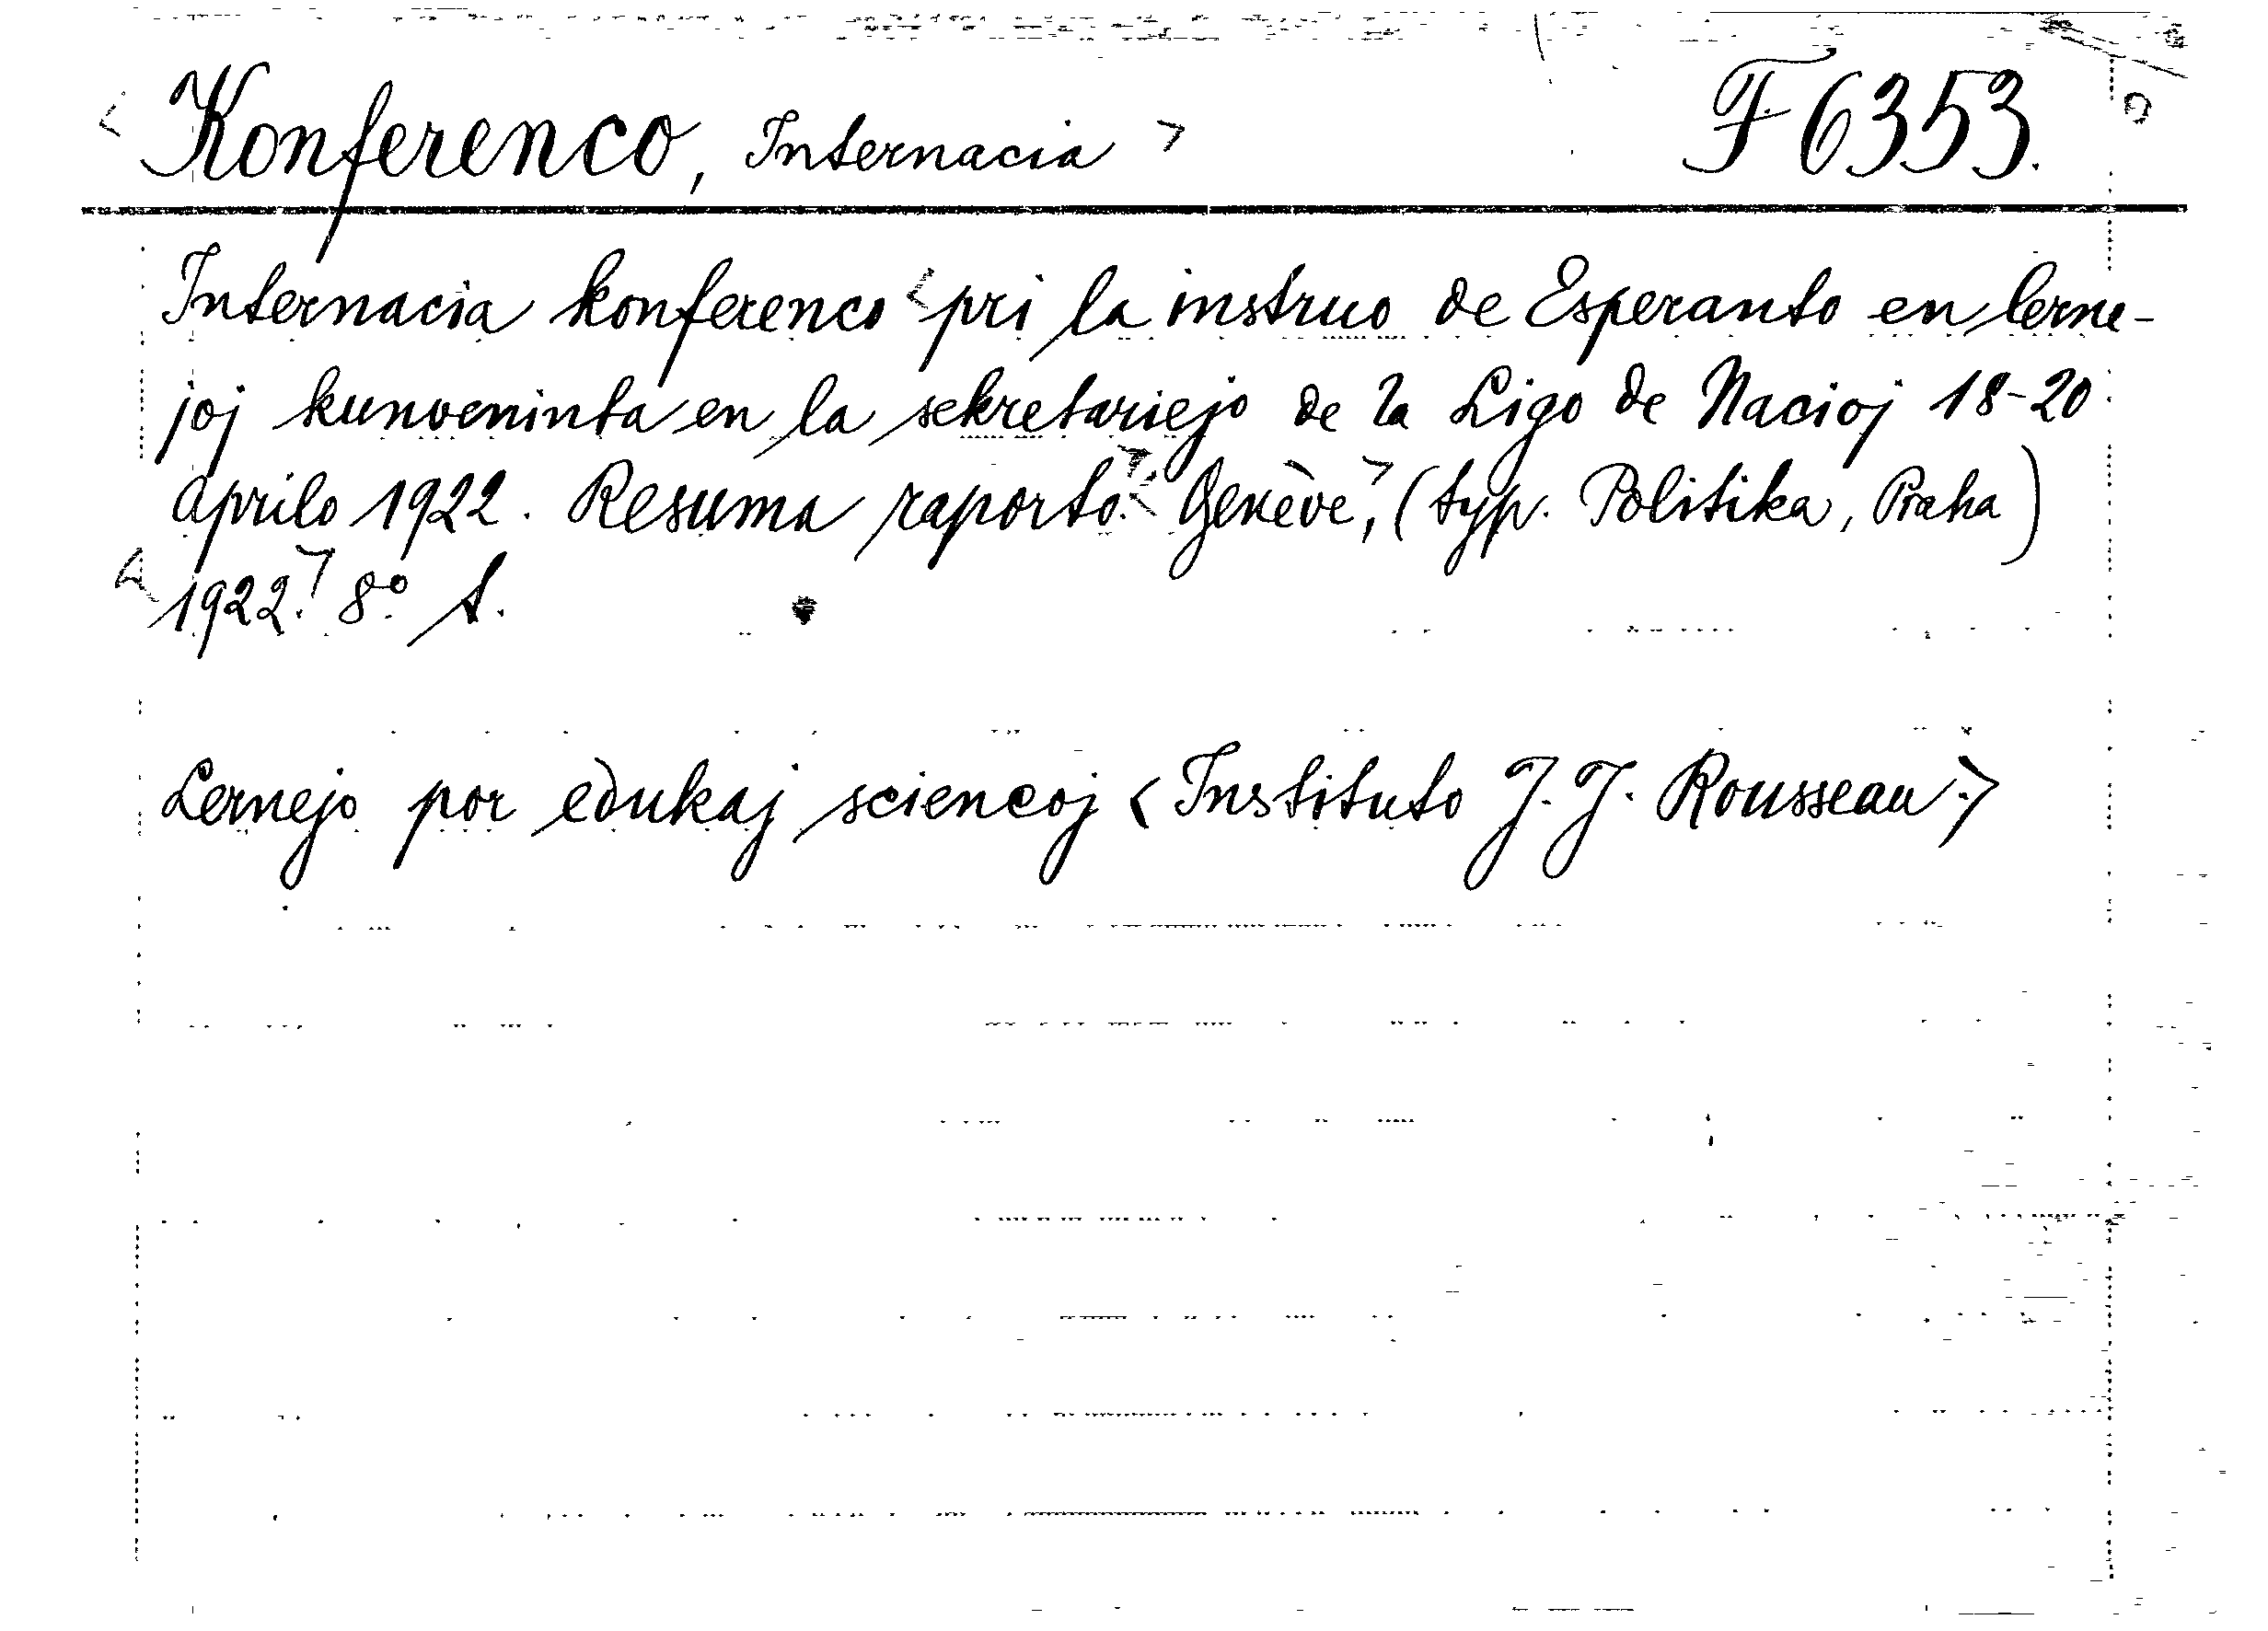 <Konferenco, Internacia> F 6353.
Internacia konferenco <pri la instruo de Esperanto en lerne-
joj kunveninta en la sekretariejo de la Ligo de Nacioj 18-20
aprilo 1922. Resuma raporto.> <Genève,> (typ. Politika, Praha)
<1922.> 8° A.
Lernejo por edukaj sciencoj <Instituto J. J. Rousseau.>